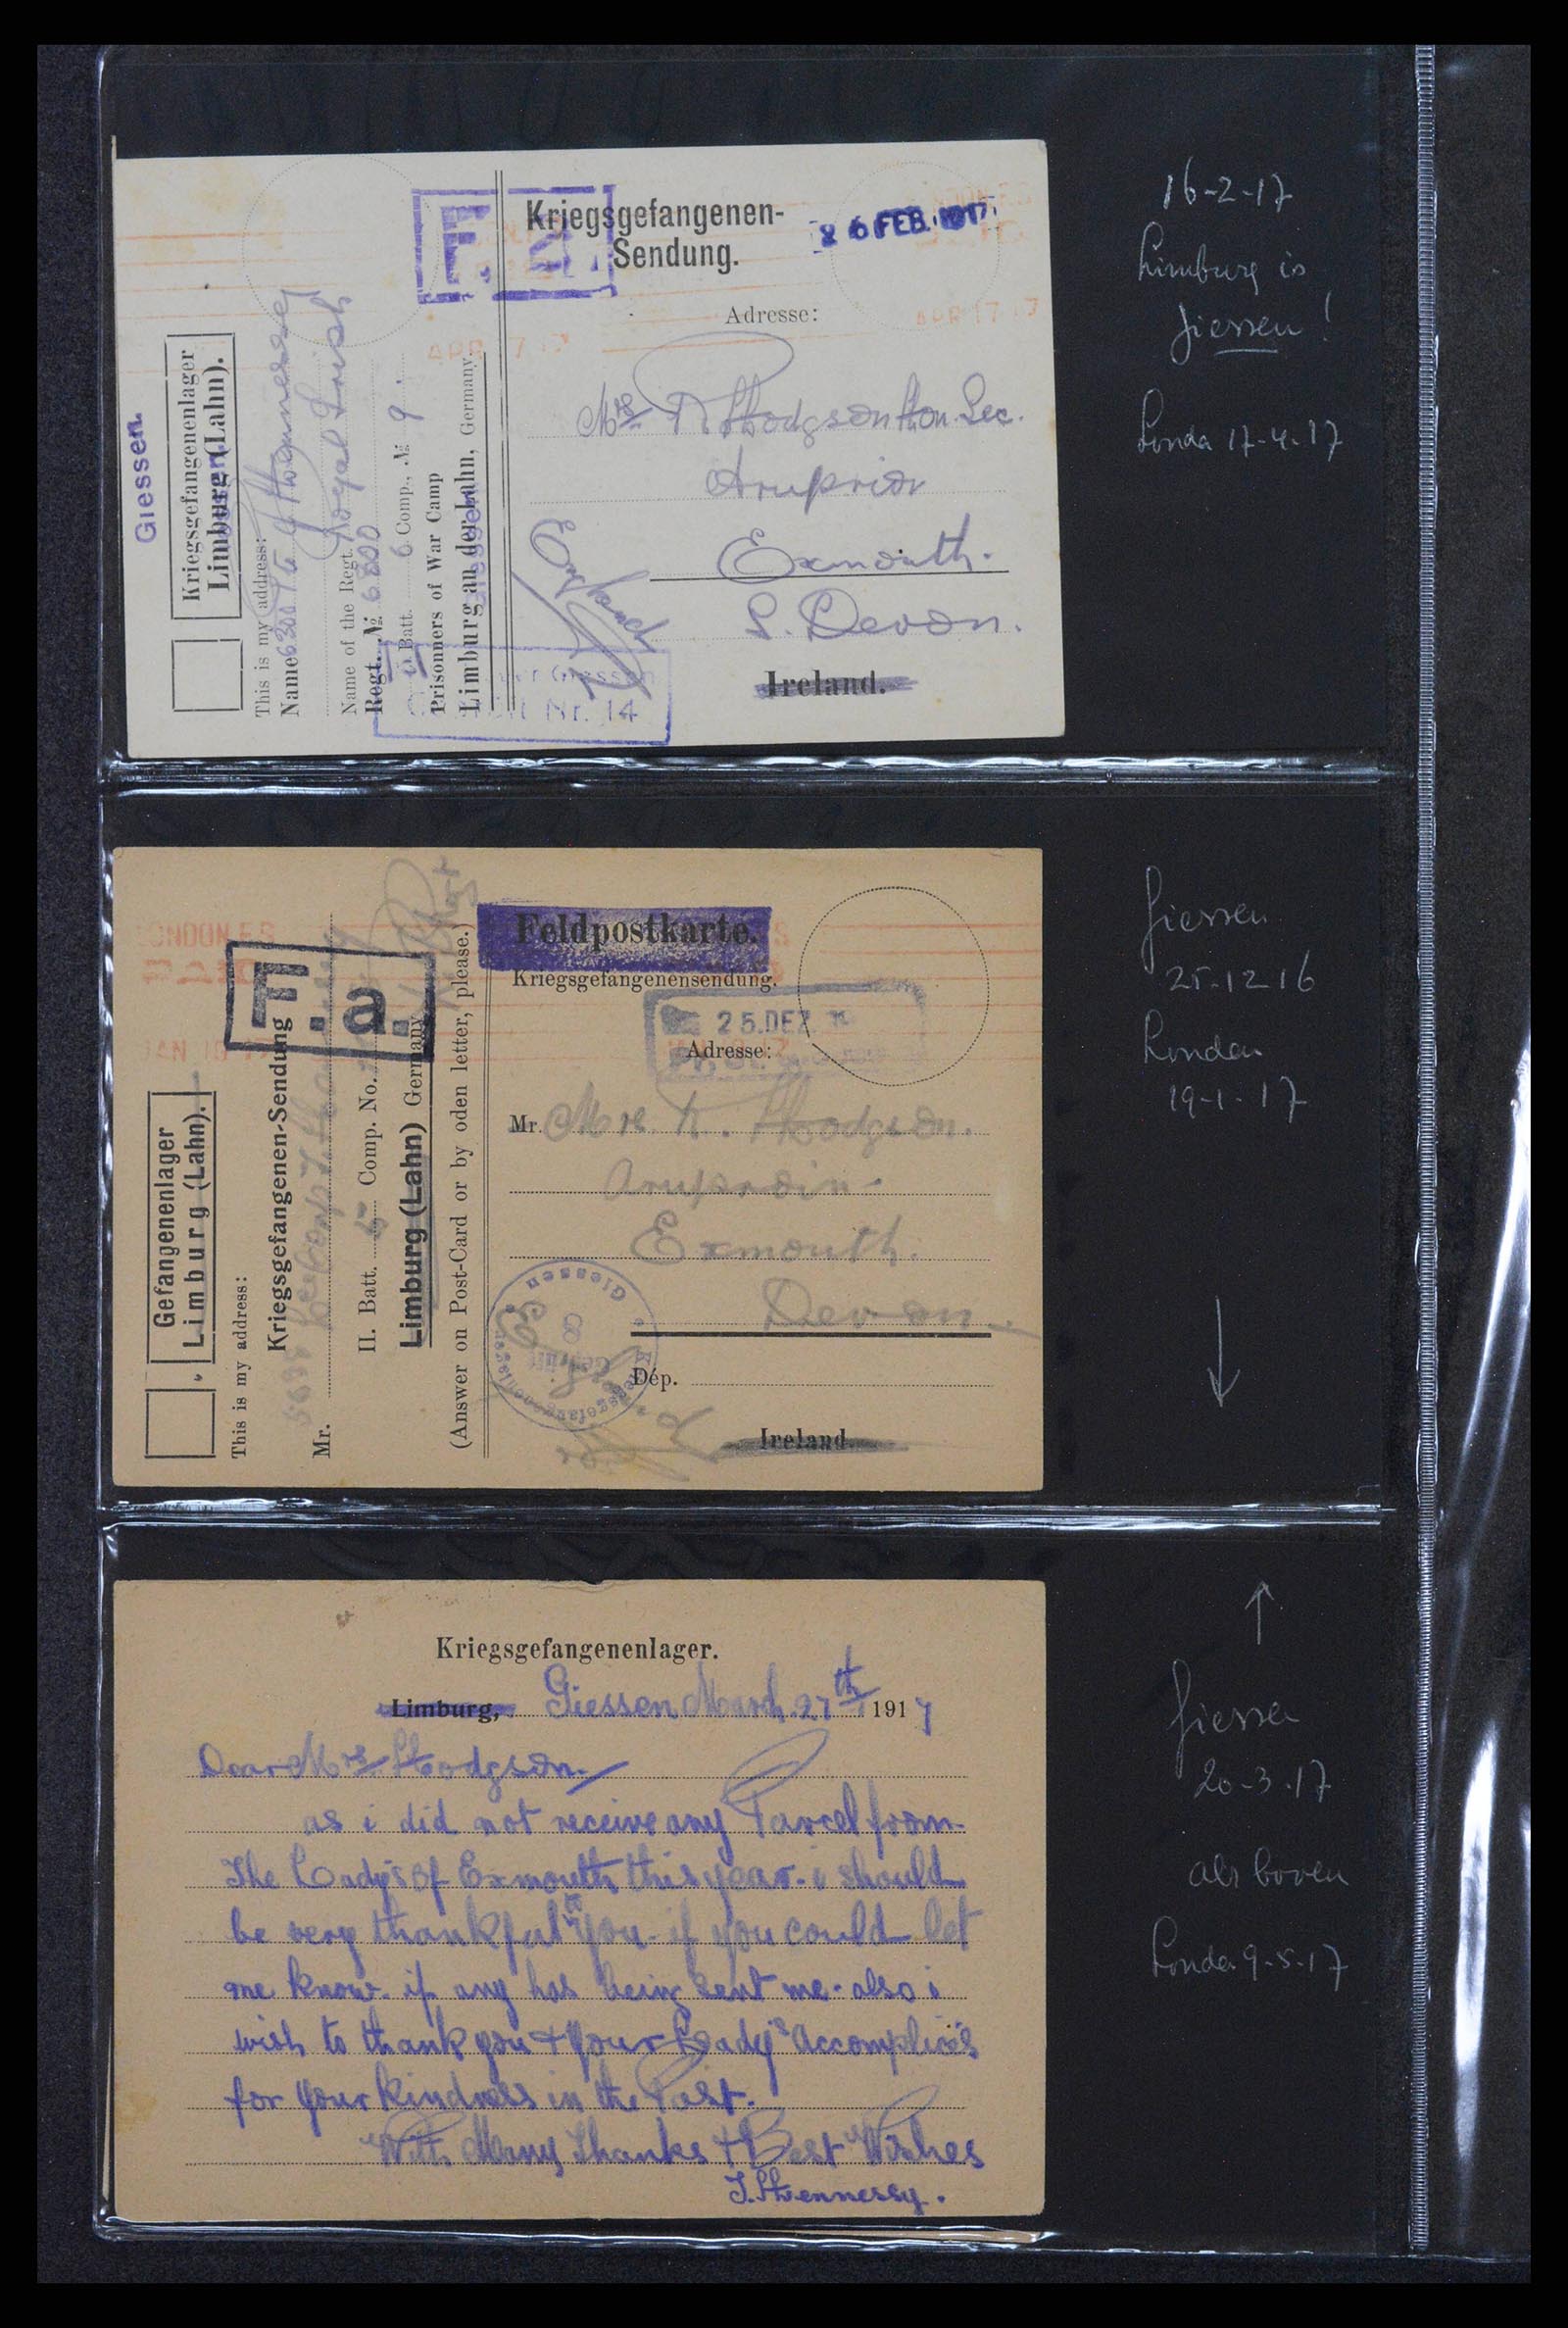 Giessen.
Kriegsgefangenenlager
Limburg (Lahn).
This is my address:
Name
Name of the Regt. Royal Irish
Regt. № 6300
Batt. 6 Comp., № 9.
Prisonners of War Camp
Limburg an der Lahn, Germany.
F. a.
Kriegsgefangenen-
Sendung.
26 FEB. 1917
APR 17 17
Adresse:
Mrs R Hodgson Hon. Sec.
Exmouth.
S. Devon.
England
Ireland.
Giessen
Nr. 14
16-2-17
Limburg is
Giessen!
Londen 17-4-17
LONDON E.S
PAID
JAN 19 17
F. a.
Gefangenenlager
Limburg (Lahn).
This is my address:
Kriegsgefangenen-Sendung
Mr.
II. Batt. Comp. No.
Limburg (Lahn) Germany
(Answer on Post-Card or by oden letter, please.)
Feldpostkarte.
Kriegsgefangenensendung.
25. DEZ.
Adresse:
Mr. Mrs. R. Hodgson.
Exmouth.
Devon
Dép.
Ireland.
Giessen
8
Geprüft
Giessen
25-12-16
Londen
19-1-17
Kriegsgefangenenlager.
Limburg, Giessen March 27th 1917
Dear Mrs Hodgson
as i did not receive any Parcel from
The Ladys of Exmouth this year. i should
be very thankful to you if you could let
me know if any has being sent me. also i
wish to thank you + your Lady's Accomplices
for your kindness in the Past.
With Many Thanks + Best Wishes
J. Hennessy.
Giessen
20-3-17
als boven
Londen 9-5-17